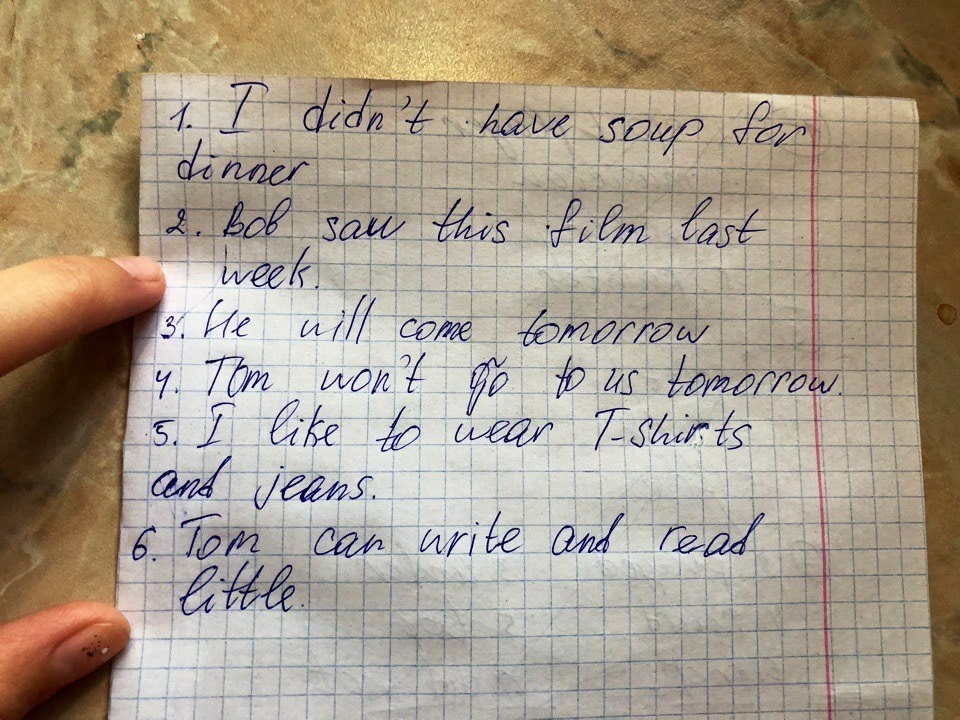 1. I didn't have soup for
dinner
2. Bob saw this film last
week.
3. He will come tomorrow
4. Tom won't go to us tomorrow.
5. I like to wear T-shirts
and jeans.
6. Tom can write and read
little.